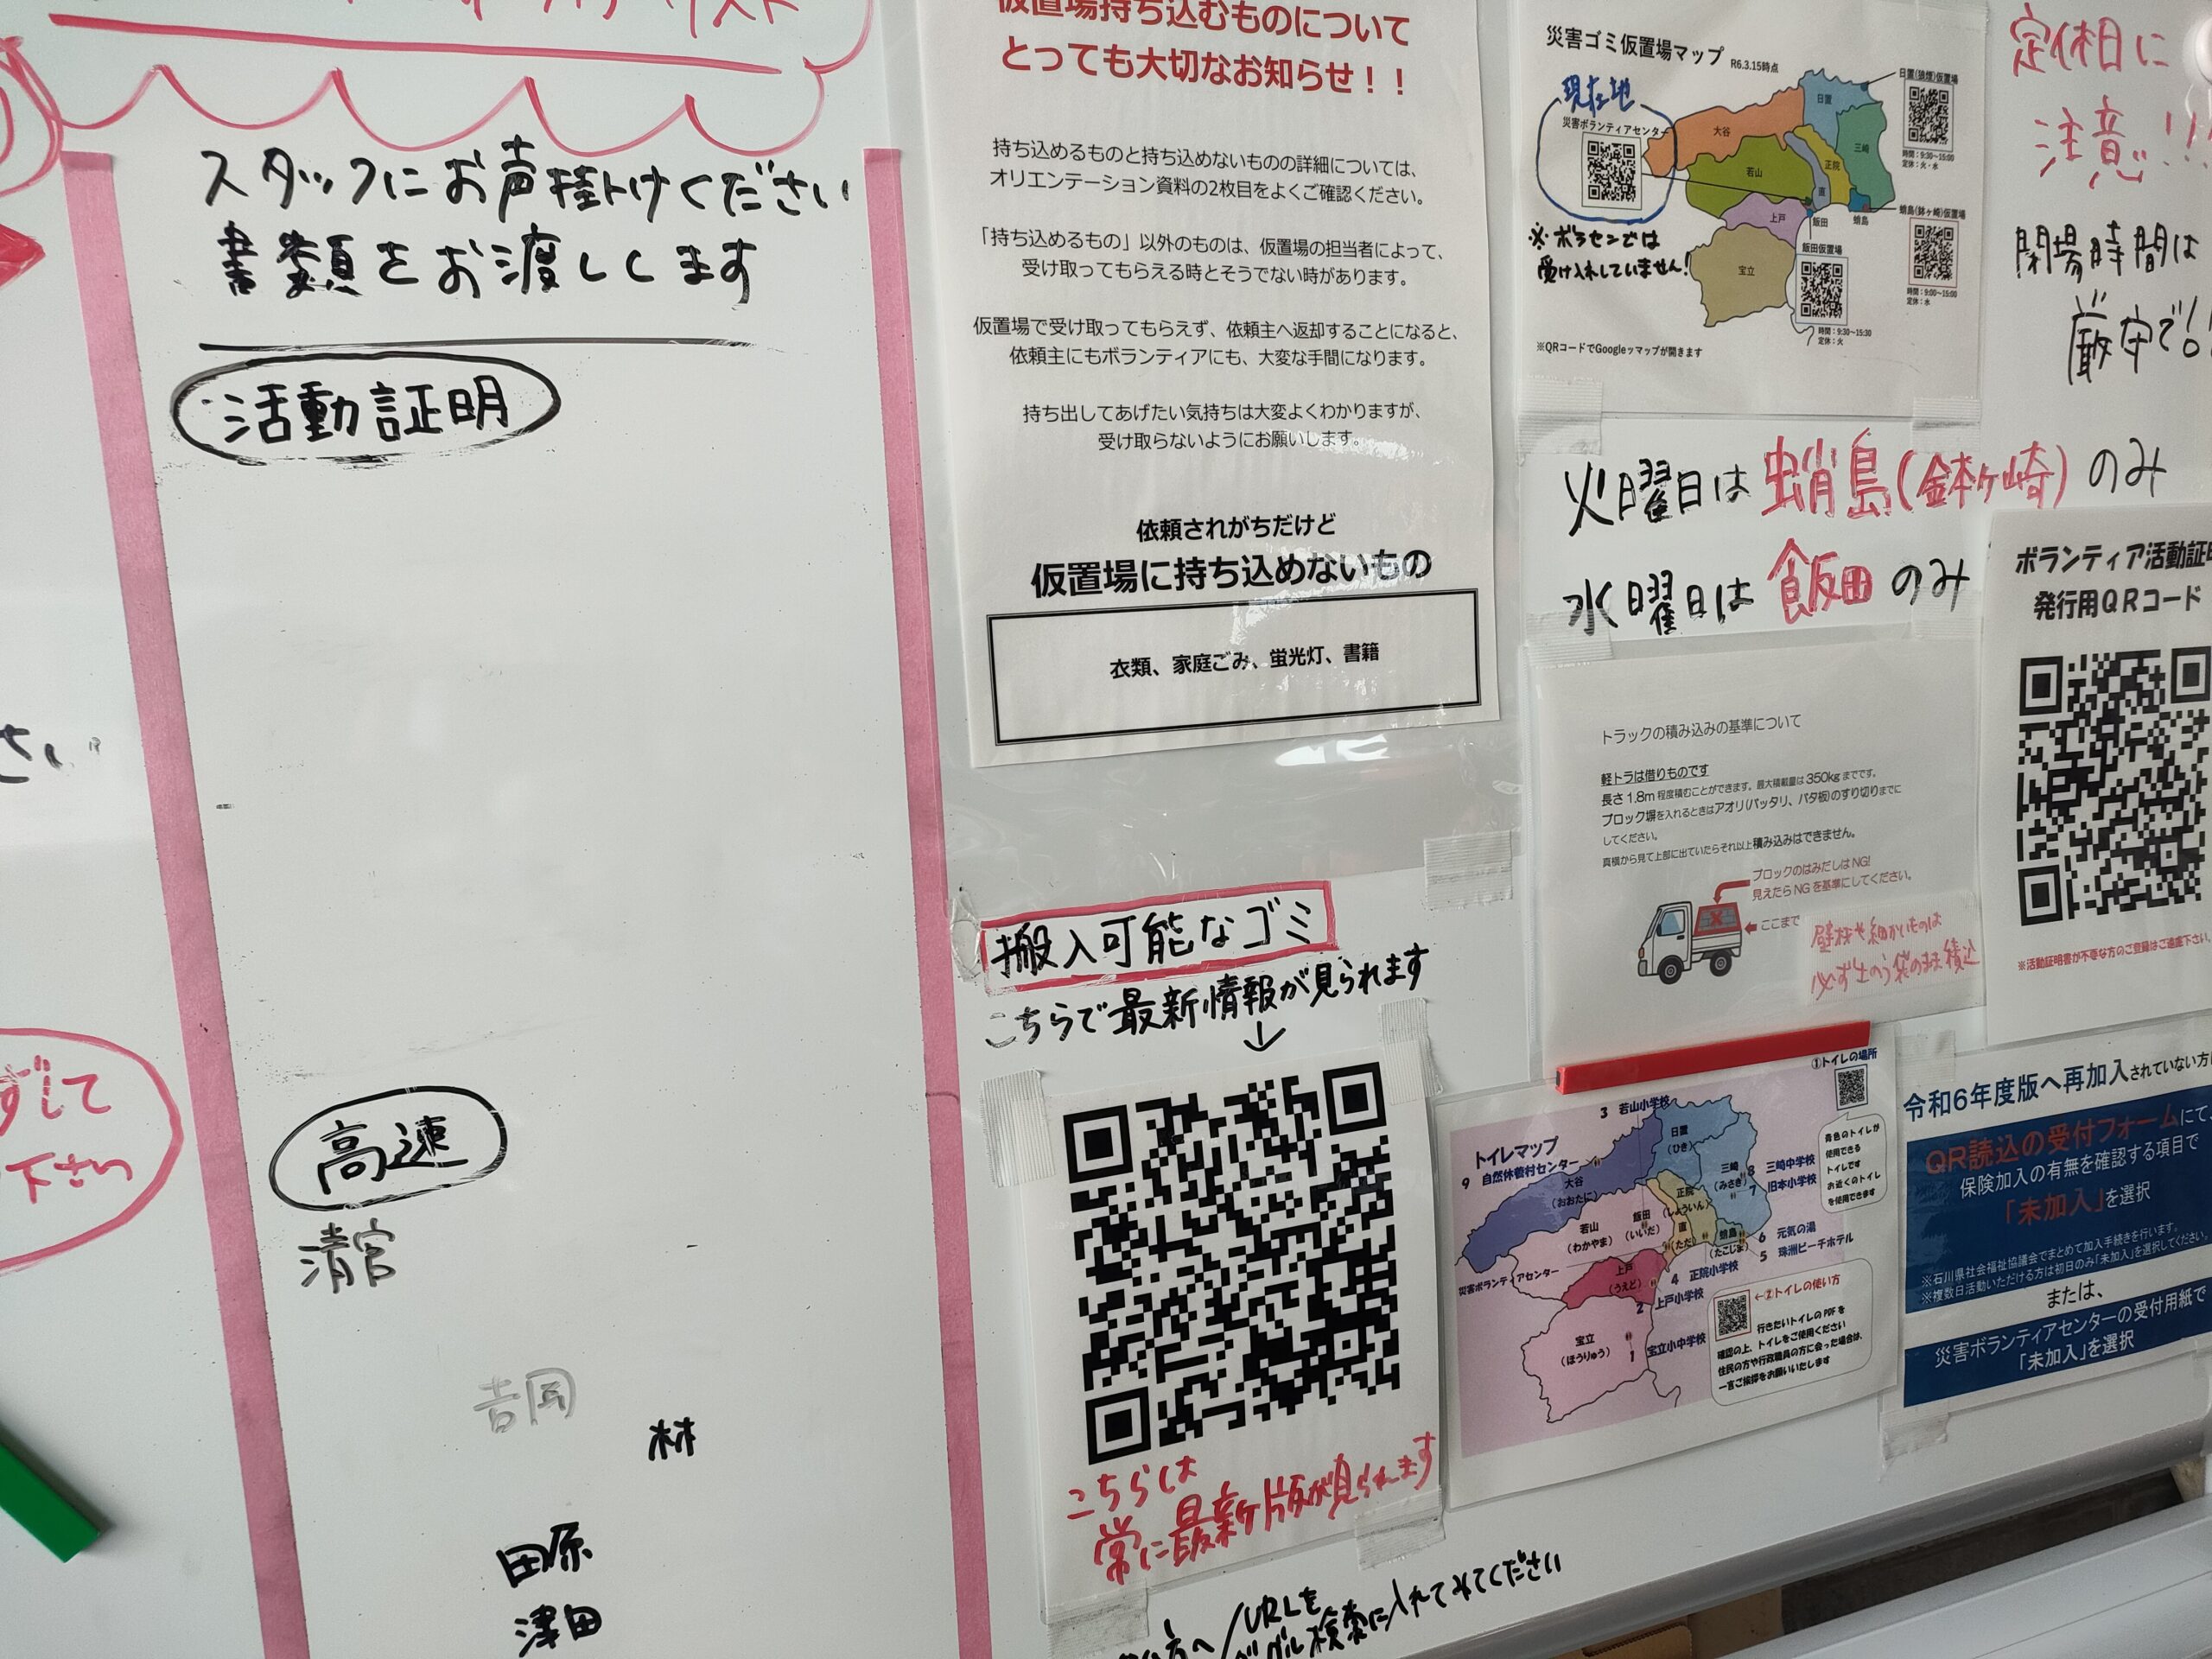 スタッフにお声掛けください
書類をお渡しします
活動証明
高速
清宮
吉岡
林
田原
津田
さい
ずして
下さい
仮置場持ち込むものについて
とっても大切なお知らせ！！
持ち込めるものと持ち込めないものの詳細については、
オリエンテーション資料の2枚目をよくご確認ください。
「持ち込めるもの」以外のものは、仮置場の担当者によって、
受け取ってもらえる時とそうでない時があります。
仮置場で受け取ってもらえず、依頼主へ返却することになると、
依頼主にもボランティアにも、大変な手間になります。
持ち出してあげたい気持ちは大変よくわかりますが、
受け取らないようにお願いします。
依頼されがちだけど
仮置場に持ち込めないもの
衣類、家庭ごみ、蛍光灯、書籍
搬入可能なゴミ
こちらで最新情報が見られます
↓
こちらは
常に最新版が見られます
方へ/URLを
グル検索に入れてみてください
災害ゴミ仮置場マップ R6.3.15時点
現在地
災害ボランティアセンター
※ボラセンでは
受け入れしていません！
大谷
日置
三崎
若山
正院
直
上戸
飯田
蛸島
宝立
日置(狼煙)仮置場
時間：9:30～15:00
定休：火・水
蛸島(鉢ヶ崎)仮置場
時間：9:00～15:00
定休：水
飯田仮置場
時間：9:30～15:30
定休：火
※QRコードでGoogleッマップが開きます
定休日に
注意!!
開場時間は
厳守で!!
火曜日は蛸島(鉢ヶ崎)のみ
水曜日は飯田のみ
トラックの積み込みの基準について
軽トラは借りものです
長さ1.8m程度積むことができます。最大積載量は350kgまでです。
ブロック塀を入れるときはアオリ(バッタリ、バタ板)のすり切りまでに
してください。
真横から見て上部に出ていたらそれ以上積み込みはできません。
ブロックのはみだしはNG!
見えたらNGを基準にしてください。
ここまで
壁材や細かいものは
必ず土のう袋のまま積込
ボランティア活動証明
発行用QRコード
※活動証明書が不要な方のご登録はご遠慮下さい。
トイレマップ
①トイレの場所
青色のトイレが
使用できる
トイレです
お近くのトイレ
を使用できます
3 若山小学校
9 自然休養村センター
大谷
(おおたに)
日置
(ひき)
三崎
(みさき)
8 三崎中学校
7 旧本小学校
正院
(しょういん)
飯田
(いいだ)
若山
(わかやま)
直
(ただ)
蛸島
(たこじま)
6 元気の湯
5 珠洲ビーチホテル
4 正院小学校
災害ボランティアセンター
上戸
(うえど)
2 上戸小学校
宝立
(ほうりゅう)
1 宝立小中学校
←②トイレの使い方
行きたいトイレのPDFを
確認の上、トイレをご使用ください
住民の方や行政職員の方に会った場合は、
一言ご挨拶をお願いいたします
令和6年度版へ再加入されていない方は
QR読込の受付フォームにて、
保険加入の有無を確認する項目で
「未加入」を選択
※石川県社会福祉協議会でまとめて加入手続きを行います。
※複数日活動いただける方は初日のみ「未加入」を選択してください。
または、
災害ボランティアセンターの受付用紙で
「未加入」を選択